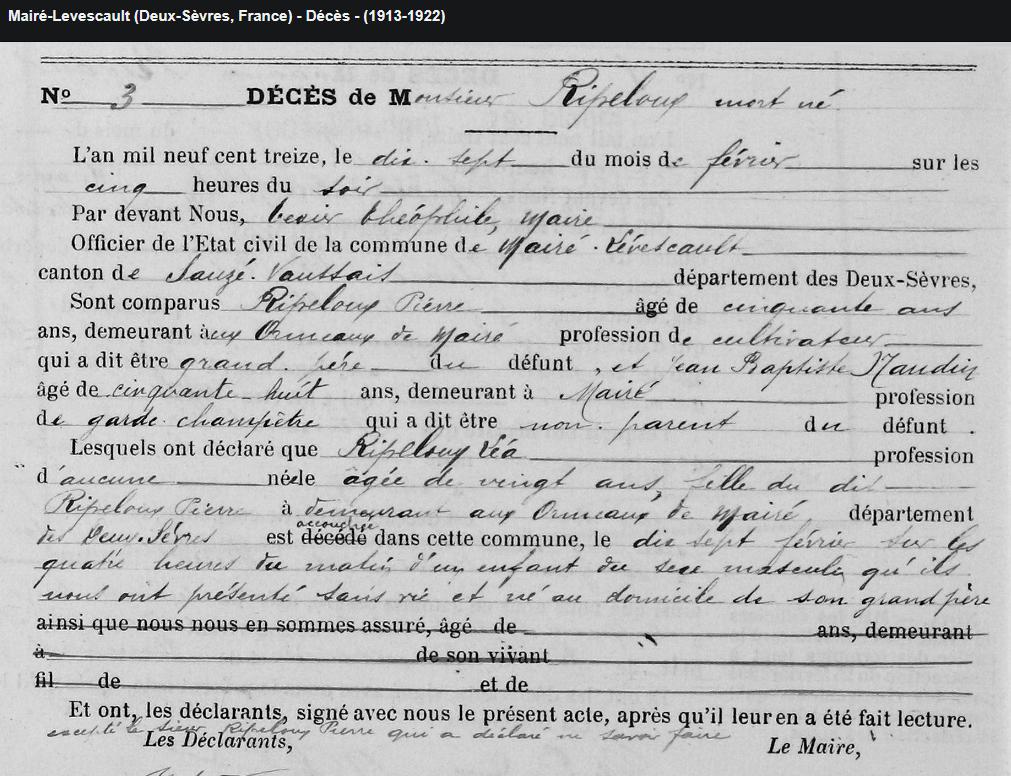 Mairé-Levescault (Deux-Sèvres, France) - Décès - (1913-1922)
Nº 3 DÉCÈS de Monsieur Ripeloux mort né
L'an mil neuf cent treize, le dix-sept du mois de février sur les
cinq heures du soir
Par devant Nous, Théophile, Maire
Officier de l'Etat civil de la commune de Mairé-Lévescault
canton de Sauzé-Vaussais département des Deux-Sèvres,
Sont comparus Ripeloux Pierre âgé de cinquante ans
ans, demeurant à aux Ormeaux de Mairé profession de cultivateur
qui a dit être grand-père du défunt, et Jean Baptiste Naudin
âgé de cinquante-huit ans, demeurant à Mairé profession
de garde-champêtre qui a dit être non-parent du défunt.
Lesquels ont déclaré que Ripeloux Léa profession
d'aucune née le âgée de vingt ans, fille du dit
Ripeloux Pierre à demeurant aux Ormeaux de Mairé département
accouchée
des Deux-Sèvres est décédé dans cette commune, le dix sept février sur les
quatre heures du matin d'un enfant du sexe masculin qu'ils
nous ont présenté sans vie et né au domicile de son grand père
ainsi que nous nous en sommes assuré, âgé de ans, demeurant
à de son vivant
fil de et de
Et ont, les déclarants, signé avec nous le présent acte, après qu'il leur en a été fait lecture.
excepté le sieur Ripeloux Pierre qui a déclaré ne savoir faire
Les Déclarants, Le Maire,